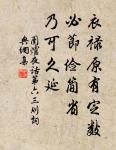 衣禄原有定数
必节俭简省
乃可久延
围炉夜话第六三则句
典词集